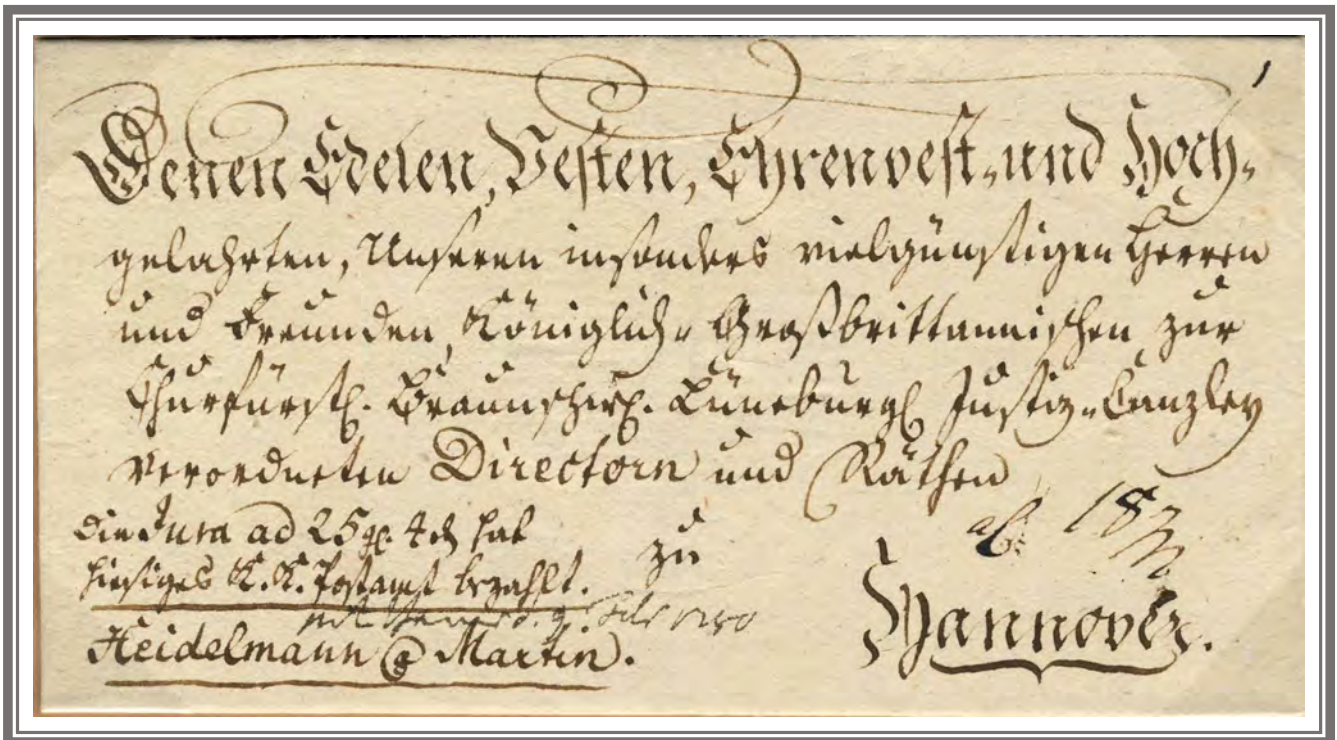 Denen Edelen, Vesten, Ehrenvest- und Hoch-
gelahrten, Unseren insonders vielgünstigen Herren
und Freunden, Königlich- Großbrittannischen, zur
Churfürstl. Braunschw. Lüneburgl. Justiz-Canzley
verordneten Directorn und Räthen
zu
Hannover.
Die Jura ad 25 gl. 4 d hat
hiesiges K. K. Postamt bezahlt.
Heidelmann Martin.